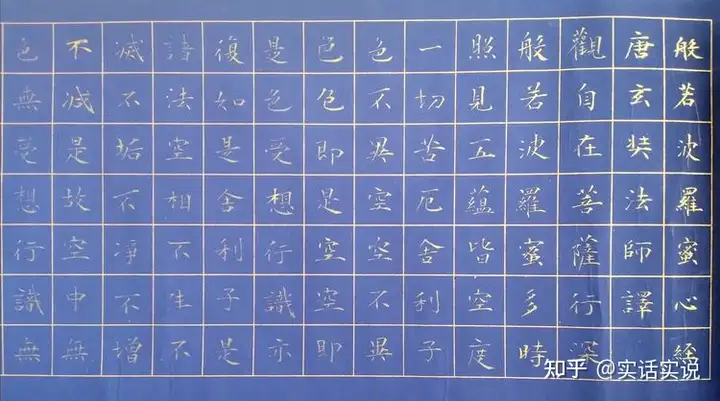 般若波羅蜜心經
唐玄奘法師譯
觀自在菩薩行深
般若波羅蜜多時
照見五蘊皆空度
一切苦厄舍利子
色不異空空不異
色色即是空空即
是色受想行識亦
復如是舍利子是
諸法空相不生不
滅不垢不凈不增
不减是故空中無
色無受想行識無
知乎 @实话实说